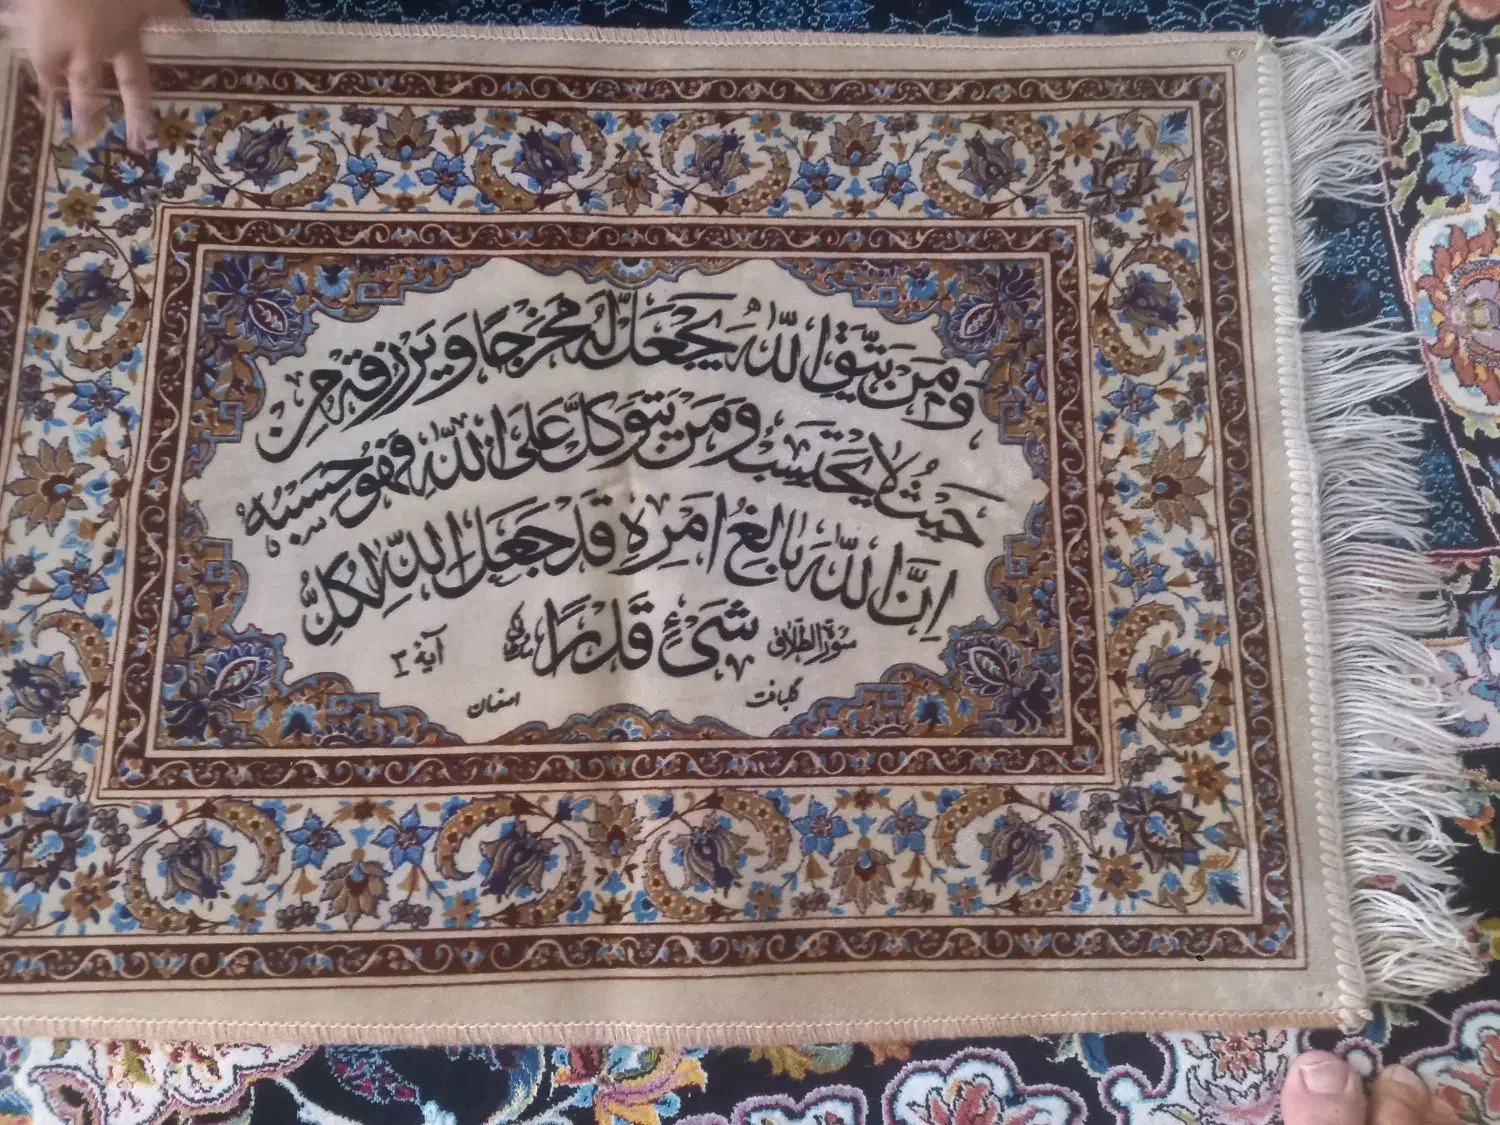 وَمَن یَتَّقِ اللّٰهَ یَجْعَل لَهُ مَخْرَجًا وَیَرْزُقْهُ مِنْ
حَیْثُ لا یَحْتَسِب وَمَن یَتَوَکَّل عَلَی اللّٰهِ فَهُوَ حَسْبُهُ
اِنَّ اللّٰهَ بالِغُ اَمْرِهِ قَدْ جَعَلَ اللّٰهُ لِکُلِّ
شَیْءٍ قَدْرًا
سورة الطلاق آیهٔ ۳
گلبافت اصفهان